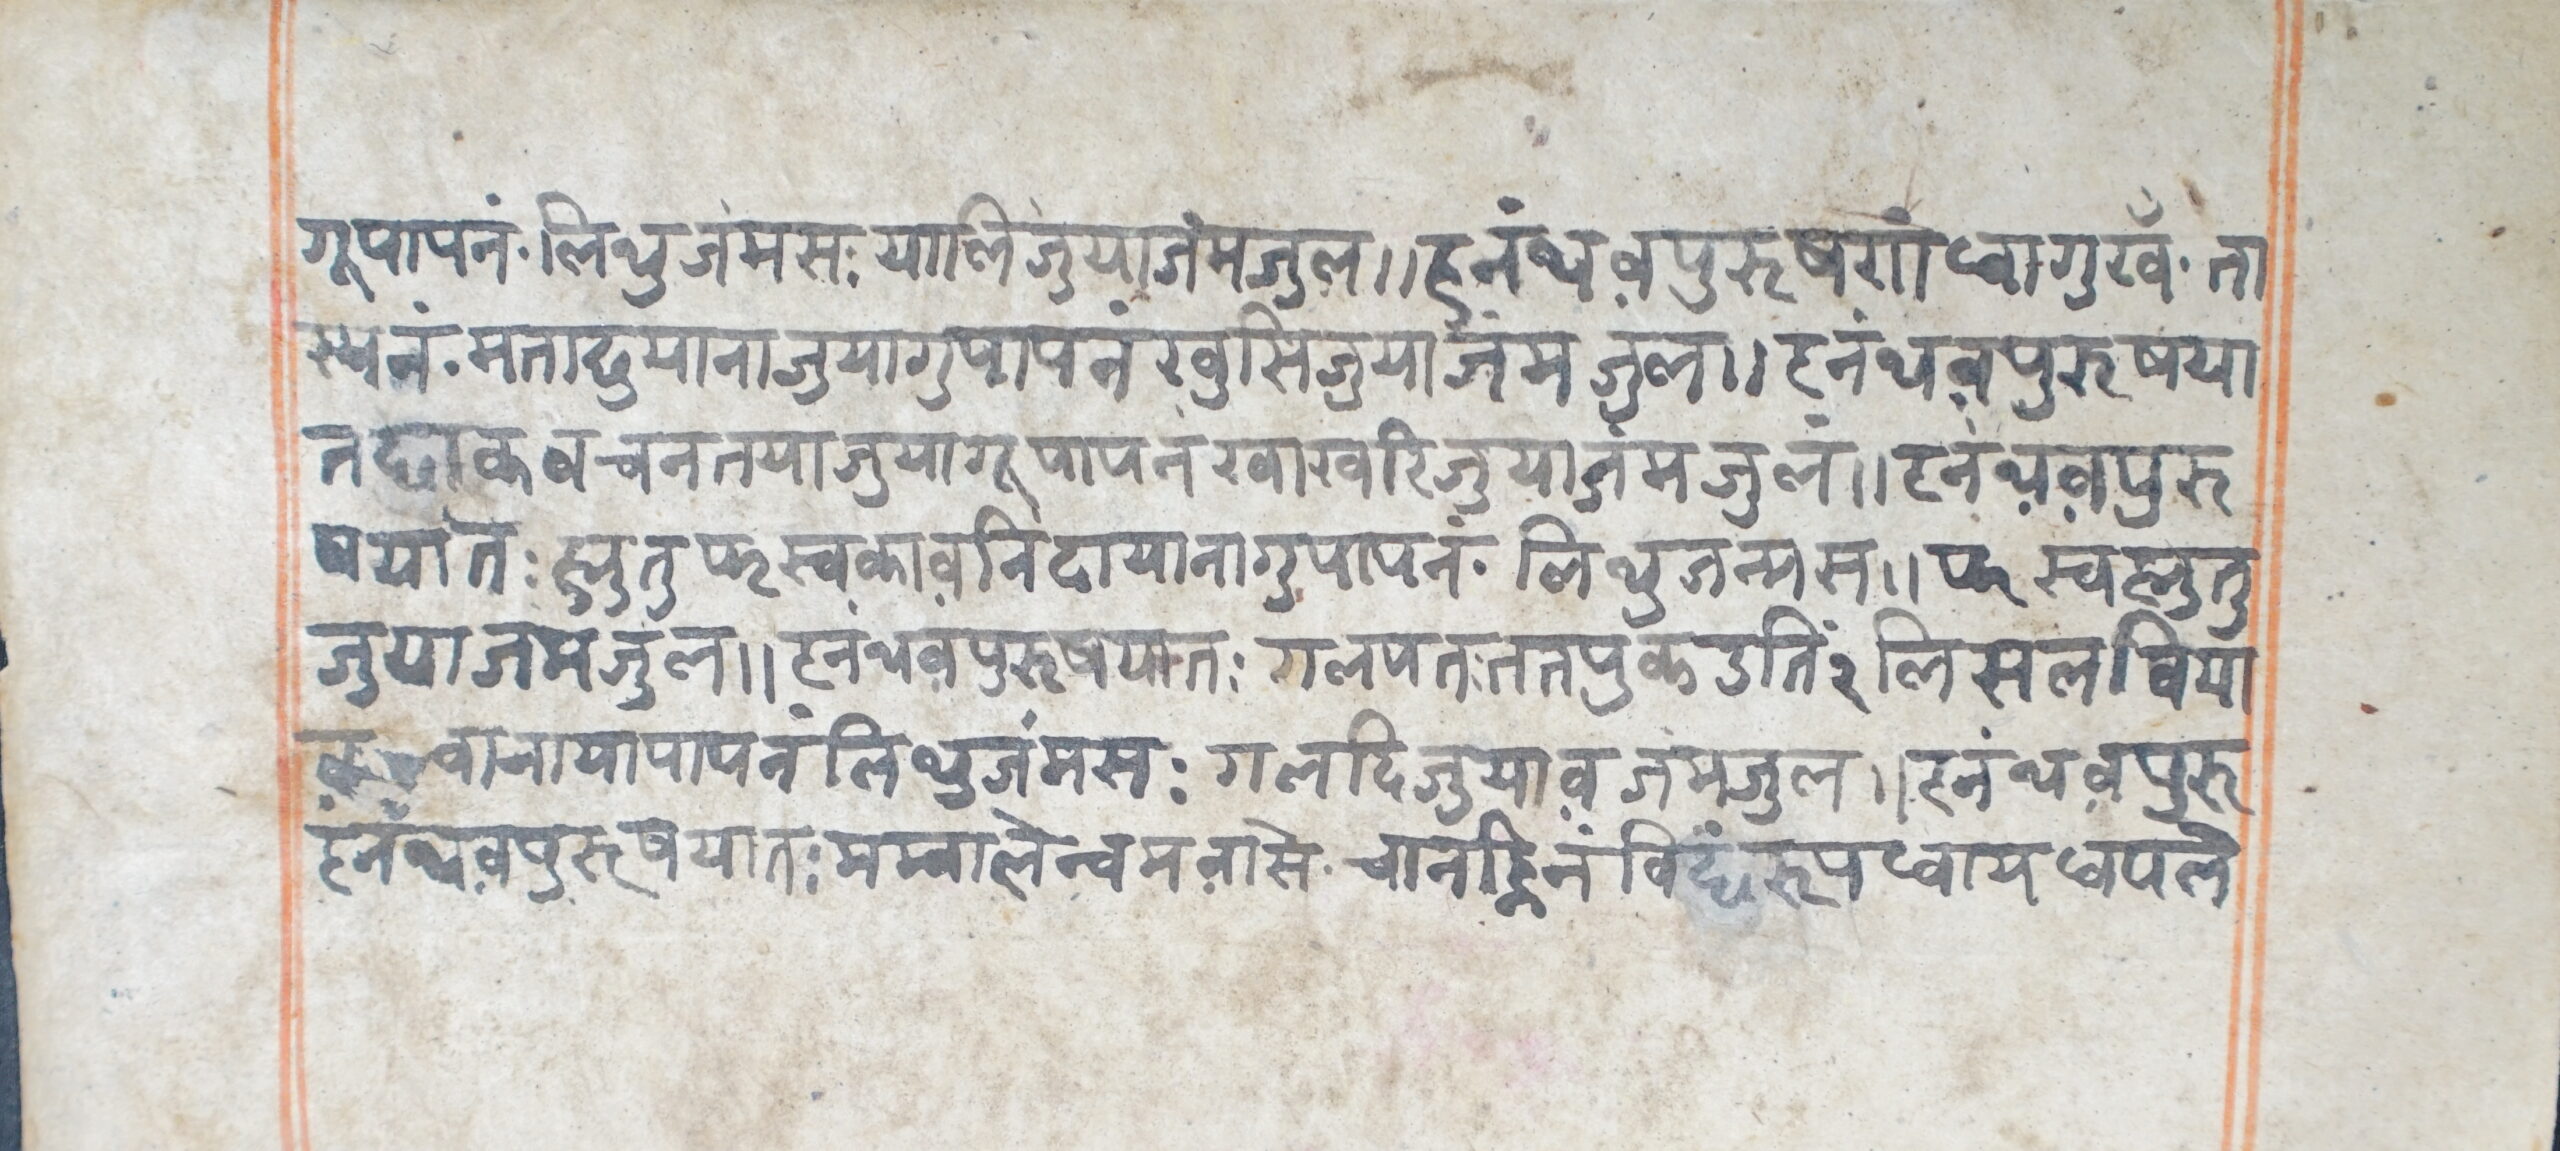 गूपापनं· लिथुजंमसः यालिजुयाजंमजुल॥ हनंथव़पुरूषगां ध्वागुखँ· ता
स्यनं· मताछुयानाजुयागुपापनं खुसिजुयाजंमजुल॥ हनंथव़पुरूषया
तछाकवचनतयाजुयागूपापनं ख्वाख्वरिजुयाजंमजुलं॥ हनंथव़पुरू
षयातः ह्तुतुफस्वकाव़निंदायानागुपापनं· लिथुजन्मस॥ फस्वह्तुतु
जुयाजंमजुल॥ हनंथव़पुरूषयातः गलपतःततपुकउतिं२लिसलबिया
वानायापापनं लिथुजंमसः गलदिजुयाव़जंमजुल॥ हनंथव़पुरू
हनंथव़पुरूषयातः मम्वालेन्वमव़ासे· चानह्निनं विछिंरूपध्वायध्वपलै